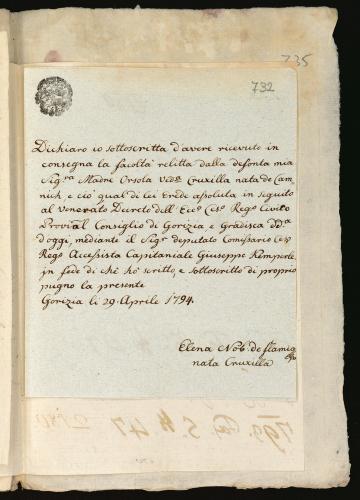 735
732
Dichiaro io sottoscritta d'avere ricevuto in
consegna la facoltà relitta dalla defonta mia
Sigra Madre Orsola Veda Cruxilla nata de Cam
nich, e ciò qual di lei Erede assoluta in seguito
al Venerato Decreto dell' Ecc.o Ces.o Reg.o Civico
Provial Consiglio di Gorizia e Gradisca dd.a
d'oggi, mediante il Sigr deputato Comissario Ces.o
Reg.o Accessista Capitaniale Giuseppe Kemperle,
in fede di chè hò scritto, e sottoscritto di proprio
pugno la presente
Gorizia li 29. Aprile 1794.
Elena Nob. de
nata Cruxilla